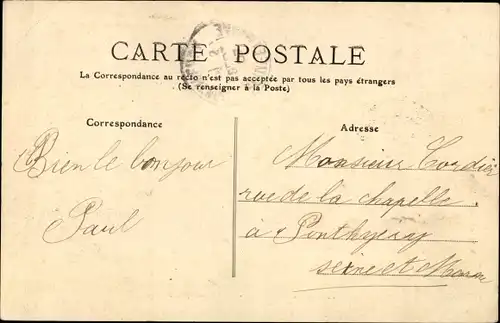 CARTE POSTALE
La Correspondance au recto n'est pas acceptée par tous les pays étrangers
(Se renseigner à la Poste)
Correspondance
Adresse
Bien le bonjour
Paul
Monsieur Cordier
rue de la chapelle
à Ponthierry
seine et Marne